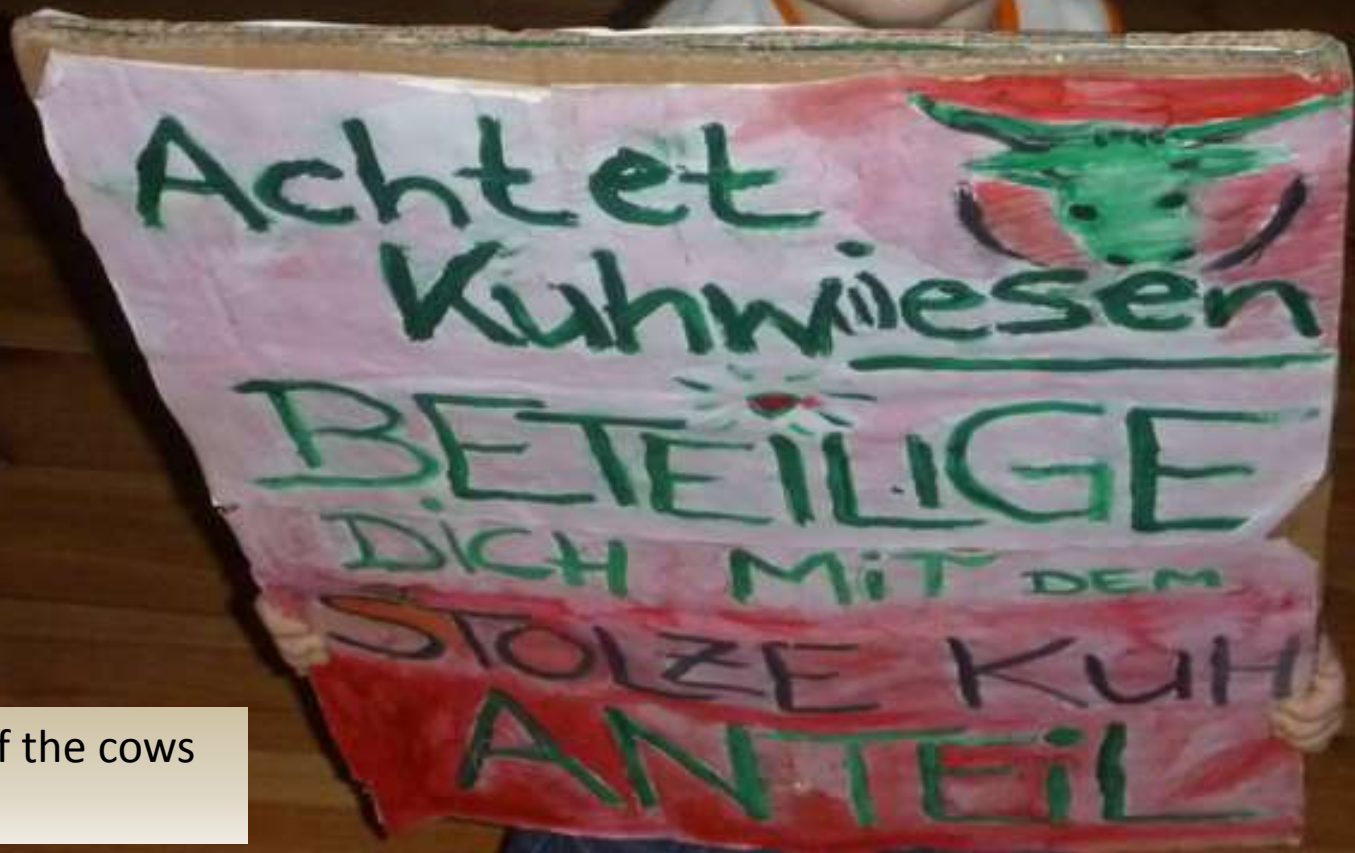 Achtet
Kuhwiesen
BETEILIGE
DiCH MiT DEM
STOLZE KUH
ANTEiL
f the cows